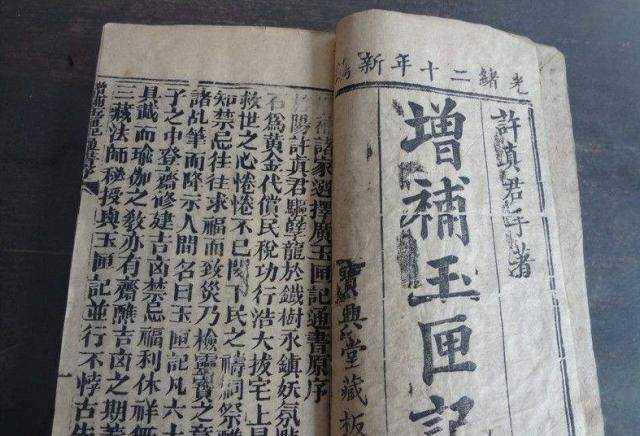 光緒二十年新鐫
許真君手著
增補玉匣記
寶興堂藏板
增補諸家選擇廣玉匣記通書原序
陽許真君驅孽龍於鐵樹永鎮妖氛
石為黃金代償民稅功行浩大拔宅上昇
救世之心惓惓不已閔下民之禱祠祭
知禁忌往往求福而致災乃檢靈寶之章
諸乩筆而降示人間名曰玉匣記凡六十
子之中登齋修建吉凶禁忌福利休祥
具載而瑜伽之教亦有齋醮吉凶之期
三藏法師秘授與玉匣記並行不悖古